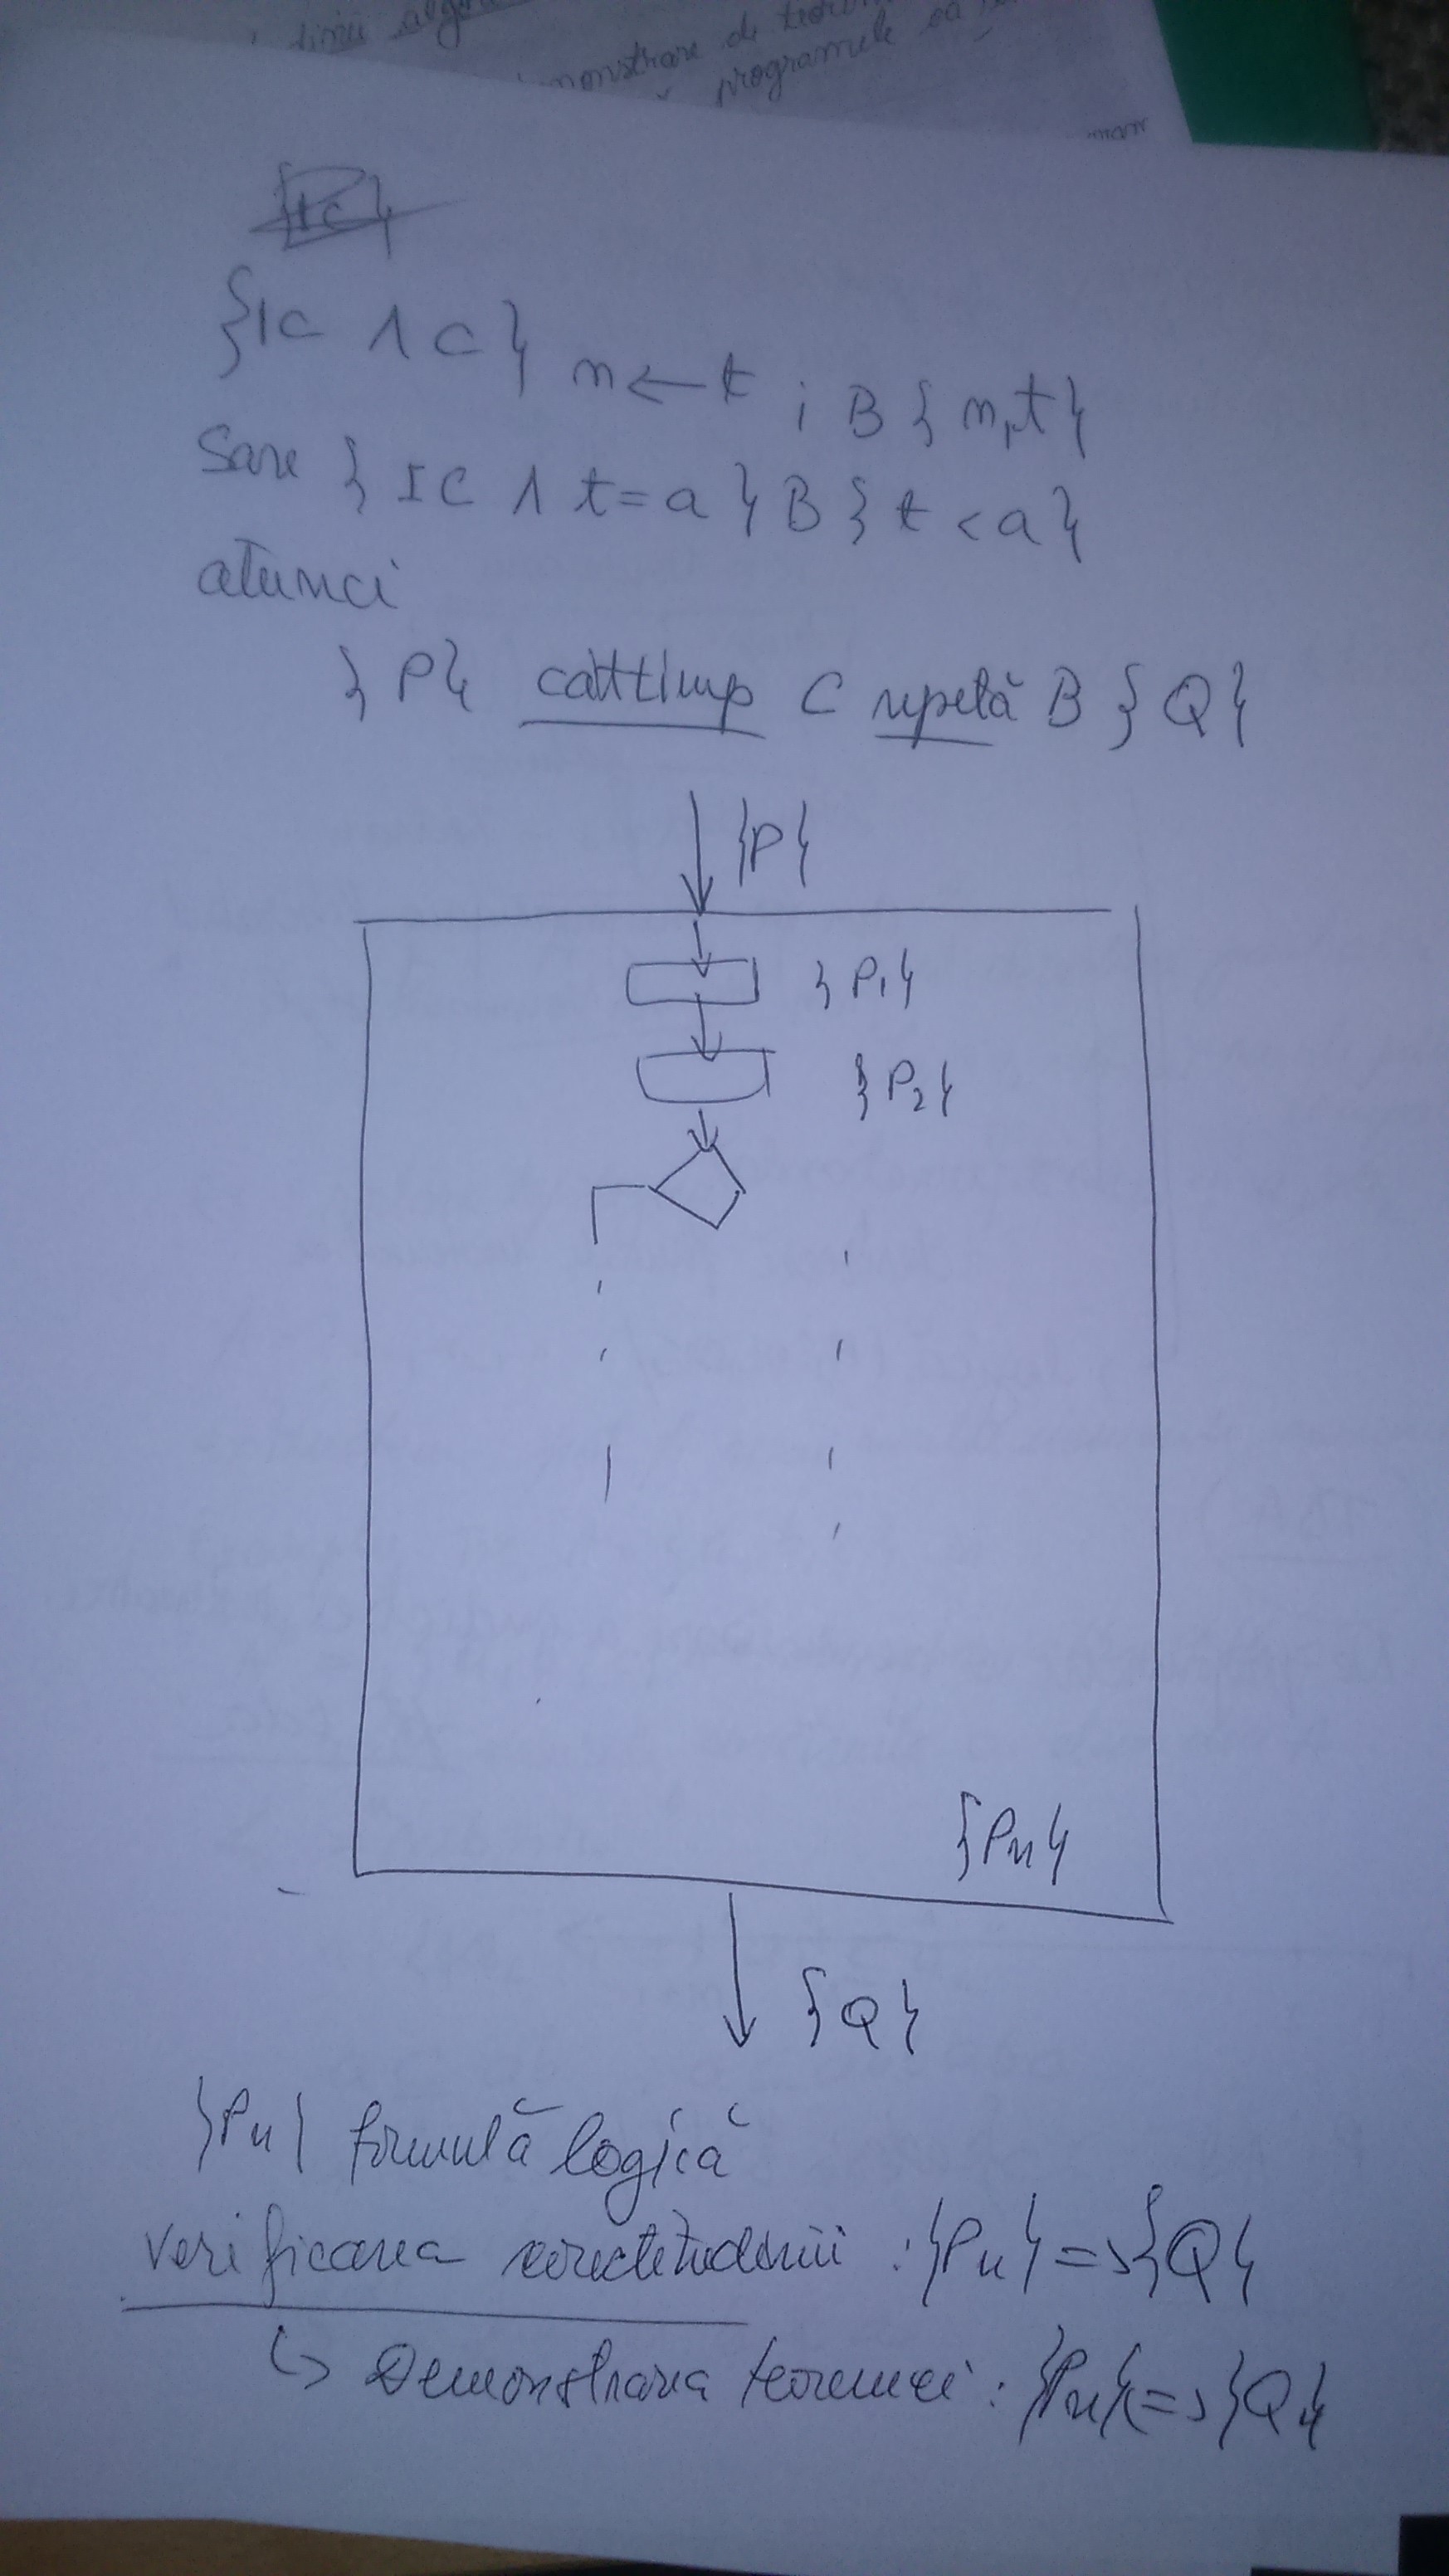 timu
monstrare de
programele să
{IC ∧ C} m ← t ; B { m, t }
Sare { IC ∧ t = a } B { t < a }
atunci
{ P } cattimp C repetă B { Q }
{P}
{ P1 }
{ P2 }
{Pn}
{Q}
{Pn} formulă logică
verificarea corectitudinii : {Pn} => {Q}
↳ Demonstrarea teoremei : {Pn} => {Q}